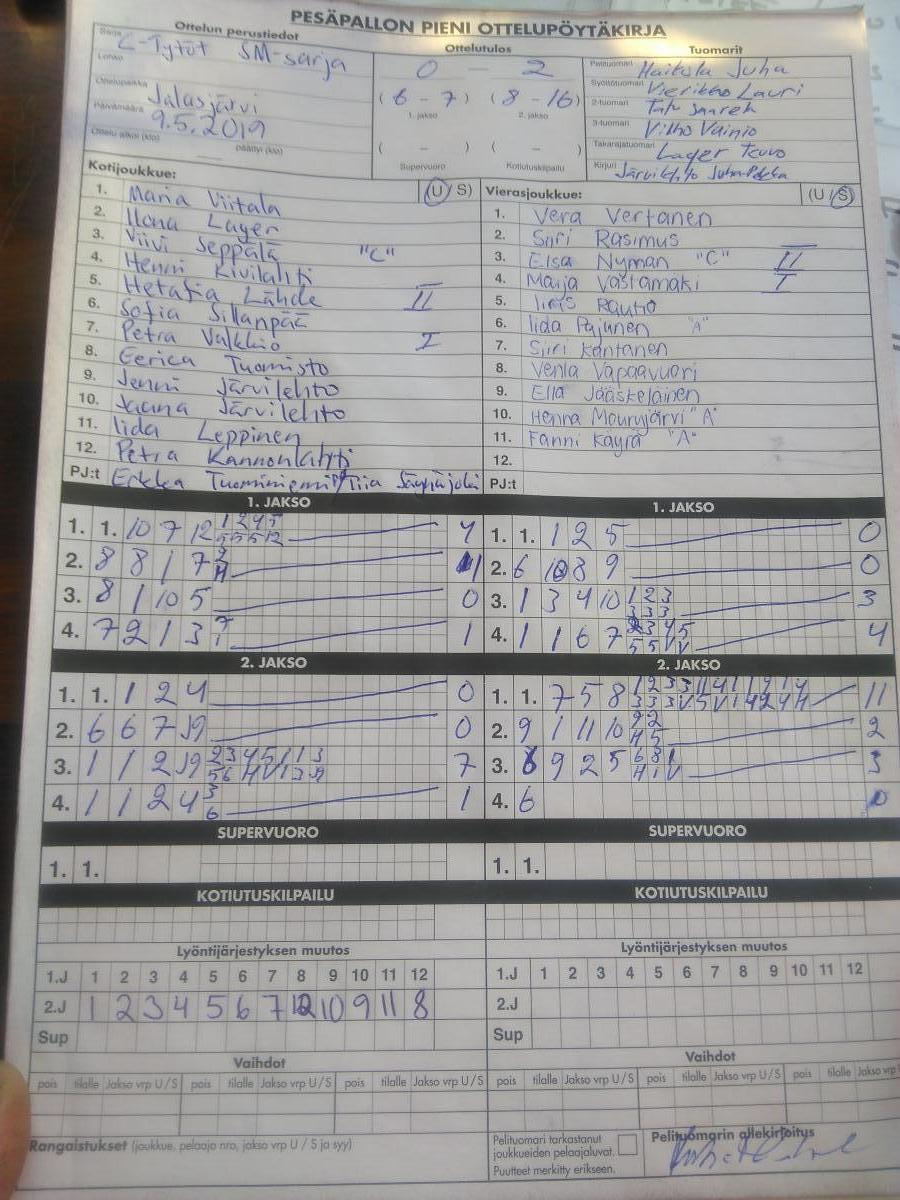 PESÄPALLON PIENI OTTELUPÖYTÄKIRJA
Ottelun perustiedot
Ottelutulos
Tuomarit
Sarja C-Tytöt SM-sarja
Lohko
Ottelupaikka Jalasjärvi
Päivämäärä 9.5.2019
Ottelu alkoi (klo) päättyi (klo)
0 – 2
(6 – 7) (8 – 16)
1. jakso 2. jakso
( – ) ( – )
Supervuoro Kotiutuskilpailu
Pelituomari Juha
Syöttötuomari Vierikko Lauri
2-tuomari
3-tuomari Vilho Vainio
Takarajatuomari Lager Teuvo
Kirjuri Järvilehto Juha-Pekka
Kotijoukkue: (U/S)
1. Maria Viitala
2. Ilona Lager
3. Viivi Seppälä "C"
4. Henni Kivilahti
5. Lähde II
6. Sofia Sillanpää
7. Petra Valkkio I
8. Eerica Tuomisto
9. Jenni Järvilehto
10. Jaana Järvilehto
11. Iida Leppinen
12. Petra Kannonlahti
PJ:t Erkka Tuominiemi Tiia
Vierasjoukkue: (U/S)
1. Vera Vertanen
2. Siiri Rasimus
3. Elsa Nyman "C" II
4. Marja Västämäki I
5. Iiris Rautio
6. Iida Pajunen "A"
7. Siiri Kantanen
8. Venla Vapaavuori
9. Ella Jääskeläinen
10. Henna "A"
11. Fanni Käyrä "A"
12.
PJ:t
1. JAKSO
1. 1. 10 7 12 4
2. 8 8 1 7
3. 8 1 10 5 0
4. 7 2 1 3 1
1. JAKSO
1. 1. 1 2 5 0
2. 6 10 8 9 0
3. 1 3 4 10 1 2 3 3 3 3 3
4. 1 1 6 7 4
2. JAKSO
1. 1. 1 2 4 0
2. 6 6 7 0
3. 1 1 2 7
4. 1 1 2 4 3 6 1
2. JAKSO
1. 1. 7 5 8 11
2. 9 1 11 10 2
3. 9 2 5 3
4. 6 0
SUPERVUORO
1. 1.
SUPERVUORO
1. 1.
KOTIUTUSKILPAILU
KOTIUTUSKILPAILU
Lyöntijärjestyksen muutos
1.J 1 2 3 4 5 6 7 8 9 10 11 12
2.J 1 2 3 4 5 6 7 12 10 9 11 8
Sup
Lyöntijärjestyksen muutos
1.J 1 2 3 4 5 6 7 8 9 10 11 12
2.J
Sup
Vaihdot
pois tilalle Jakso vrp U/S pois tilalle Jakso vrp U/S pois tilalle Jakso vrp U/S
Vaihdot
pois tilalle Jakso vrp U/S pois tilalle Jakso vrp U/S pois tilalle Jakso vrp
Rangaistukset (joukkue, pelaaja nro, jakso vrp U / S ja syy)
Pelituomari tarkastanut
joukkueiden pelaajaluvat.
Puutteet merkitty erikseen.
Pelituomarin allekirjoitus